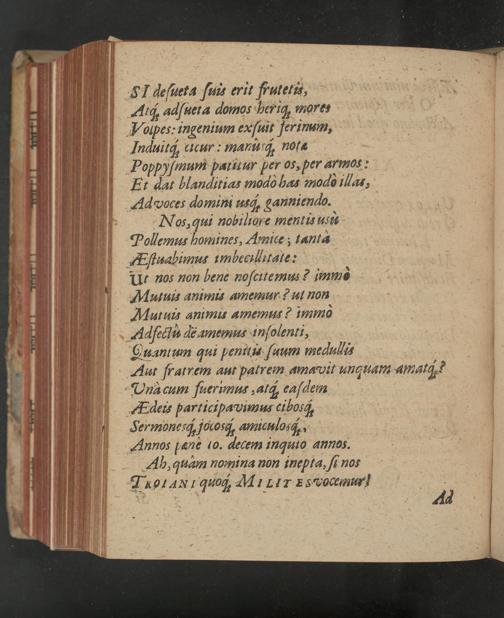 SI desueta suis erit frutetis,
Atq́ adsueta domos heriq́ mores
Volpes: ingenium exsuit ferinum,
Induitq́ cicur: manûsq́ nota
Poppysmum patitur per os, per armos:
Et dat blanditias modò has modò illas,
Ad voces domini usq́ ganniendo.
Nos, qui nobiliore mentis usù
Pollemus homines, Amice; tantà
Æstuabimus imbecillitate:
Ut nos non bene noscitemus? immò
Mutuis animis amemur? ut non
Mutuis animis amemus? immò
Adfectû deamemus insolenti,
Quantum qui penitis suum medullis
Aut fratrem aut patrem amavit unquam amatq́?
Unà cum fuerimus, atq́ easdem
Ædeis participavimus cibosq́
Sermonesq́, jocosq́, amiculosq́,
Annos pæne 10. decem inquio annos.
Ah, quàm nomina non inepta, si nos
TROIANI quoq́ MILITES vocemur!
Ad